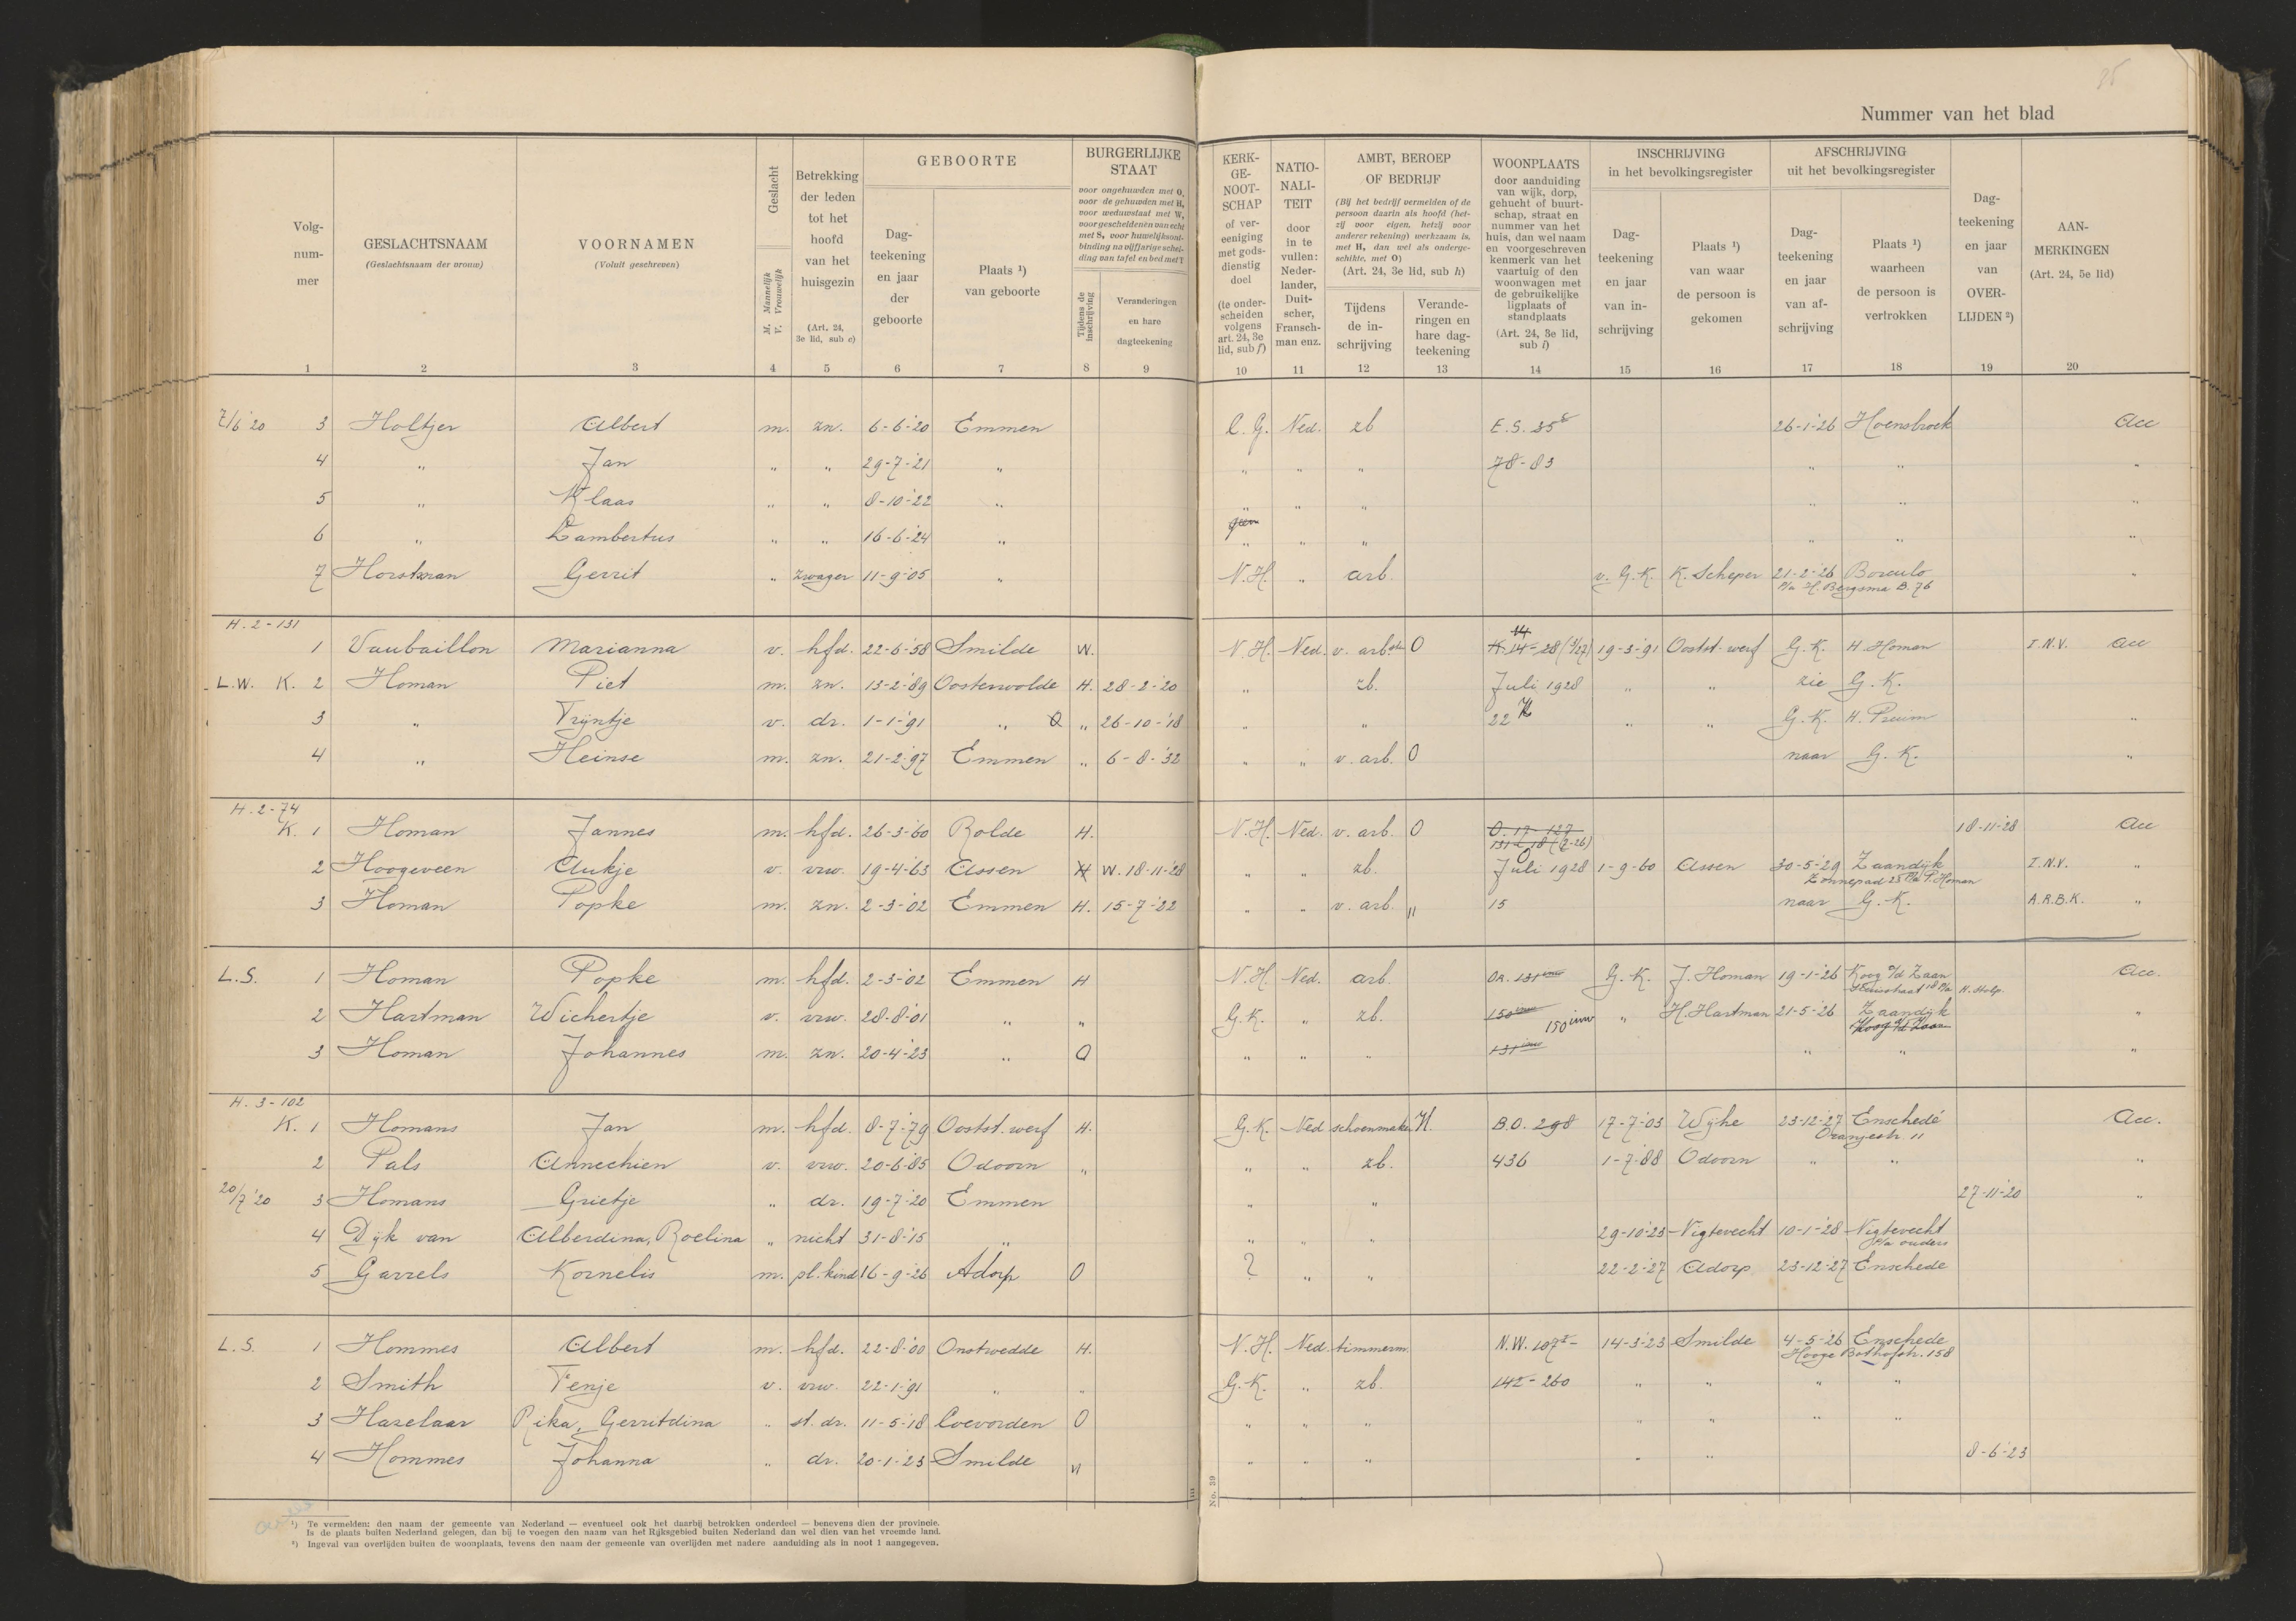 35
Nummer van het blad
Volg-
num-
mer
GESLACHTSNAAM
(Geslachtsnaam der vrouw)
VOORNAMEN
(Voluit geschreven)
Geslacht
M. Mannelijk
V. Vrouwelijk
Betrekking
der leden
tot het
hoofd
van het
huisgezin
(Art. 24,
3e lid, sub c)
GEBOORTE
Dag-
teekening
en jaar
der
geboorte
Plaats ¹)
van geboorte
BURGERLIJKE
STAAT
voor ongehuwden met O,
voor de gehuwden met H,
voor weduwstaat met W,
voor gescheidenen van echt
met S, voor huwelijksont-
binding na vijfjarige schei-
ding van tafel en bed met T
Tijdens de
inschrijving
Veranderingen
en hare
dagteekening
KERK-
GE-
NOOT-
SCHAP
of ver-
eeniging
met gods-
dienstig
doel
(te onder-
scheiden
volgens
art. 24, 3e
lid, sub f)
NATIO-
NALI-
TEIT
door
in te
vullen:
Neder-
lander,
Duit-
scher,
Fransch-
man enz.
AMBT, BEROEP
OF BEDRIJF
(Bij het bedrijf vermelden of de
persoon daarin als hoofd (het-
zij voor eigen, hetzij voor
anderer rekening) werkzaam is,
met H, dan wel als onderge-
schikte, met O)
(Art. 24, 3e lid, sub h)
Tijdens
de in-
schrijving
Verande-
ringen en
hare dag-
teekening
WOONPLAATS
door aanduiding
van wijk, dorp,
gehucht of buurt-
schap, straat en
nummer van het
huis, dan wel naam
en voorgeschreven
kenmerk van het
vaartuig of den
woonwagen met
de gebruikelijke
ligplaats of
standplaats
(Art. 24, 3e lid,
sub i)
INSCHRIJVING
in het bevolkingsregister
Dag-
teekening
en jaar
van in-
schrijving
Plaats ¹)
van waar
de persoon is
gekomen
AFSCHRIJVING
uit het bevolkingsregister
Dag-
teekening
en jaar
van af-
schrijving
Plaats ¹)
waarheen
de persoon is
vertrokken
Dag-
teekening
en jaar
van
OVER-
LIJDEN ²)
AAN-
MERKINGEN
(Art. 24, 5e lid)
1 2 3 4 5 6 7 8 9 10 11 12 13 14 15 16 17 18 19 20
7/6 '20 3 Holtjer Albert m. zn. 6-6-'20 Emmen C.G. Ned. zb E.S. 35 26-1-'26 Hoensbroek Acc
4 " Jan " " 29-7-'21 " " " " 78-83 " " "
5 " Klaas " " 8-10-'22 " " " " " " "
geen
6 " Lambertus " " 16-6-'24 " " " " " " "
7 Horstman Gerrit " zwager 11-9-'05 " N.H. " arb. v. G.K. K. Scheper 21-2-'26 Borculo "
p/a H. Bergsma B.76
H. 2-131
1 Vaubaillon Marianna v. hfd. 22-6-'58 Smilde W. N.H. Ned. v. arb.ster O K. 14-28 (1/27) 19-3-'91 Oostst. werf G.K. H. Homan I.N.V. Acc
14
L.W. K. 2 Homan Piet m. zn. 13-2-'89 Oosterwolde H. 28-2-'20 " zb. Juli 1928 " " zie G.K.
3 " Trijntje v. dr. 1-1-'91 " O " 26-10-'18 " " 22 K " " G.K. H. Pruim "
4 " Heinse m. zn. 21-2-'97 Emmen " 6-8-'32 " " v. arb. O naar G.K. "
H. 2-74
K. 1 Homan Jannes m. hfd. 26-3-'60 Rolde H. N.H. Ned. v. arb. O O. 17-127 18-11-'28 Acc
2 Hoogeveen Aukje v. vrw. 19-4-'63 Assen H W. 18-11-'28 " " zb. Juli 1928 1-9-'60 Assen 30-5-'29 Zaandijk I.N.V. "
Zonnepad 25 p/a P. Homan
3 Homan Popke m. zn. 2-3-'02 Emmen H. 15-7-'22 " " v. arb. " 15 naar G.K. A.R.B.K. "
L.S. 1 Homan Popke m. hfd. 2-3-'02 Emmen H N.H. Ned. arb. OR. 131 inw G.K. J. Homan 19-1-'26 Koog a/d Zaan Acc.
18 p/a H. Stolp.
2 Hartman Wichertje v. vrw. 28-8-'01 " " G.K. " zb. 150 inw " H. Hartman 21-5-'26 Zaandijk "
150 inw Koog a/d Zaan
3 Homan Johannes m. zn. 20-4-'23 " O " " " 131 inw " " "
H. 3-102
K. 1 Homans Jan m. hfd. 8-7-'79 Oostst. werf H. G.K. Ned schoenmaker H. B.O. 298 17-7-'03 Wijhe 23-12-'27 Enschedé Acc.
Oranjestr. 11
2 Pals Annechien v. vrw. 20-6-'85 Odoorn " " " zb. 436 1-7-'88 Odoorn " " "
20/7 '20 3 Homans Grietje " dr. 19-7-'20 Emmen " " 27-11-'20 "
4 Dijk van Alberdina, Roelina " nicht 31-8-'15 " " " " 29-10-'23 Nigtevecht 10-1-'28 Nigtevecht
p/a ouders
5 Garrels Kornelis m. pl. kind 16-9-'26 Adorp O ? " " 22-2-'27 Adorp 23-12-'27 Enschede
L.S. 1 Hommes Albert m. hfd. 22-8-'00 Onstwedde H. N.H. Ned. timmerm. N.W. 107 14-3-'23 Smilde 4-5-'26 Enschede
Hooge Bothofstr. 158
2 Smith Fenje v. vrw. 22-1-'91 " " G.K. " zb. 142-260 " " " "
3 Haselaar Rika, Gerritdina " st. dr. 11-5-'18 Coevorden O " " " " " " "
4 Hommes Johanna " dr. 20-1-'23 Smilde " " " " " " 8-6-'23
III
No. 39
¹) Te vermelden: den naam der gemeente van Nederland — eventueel ook het daarbij betrokken onderdeel — benevens dien der provincie.
Is de plaats buiten Nederland gelegen, dan bij te voegen den naam van het Rijksgebied buiten Nederland dan wel dien van het vreemde land.
²) Ingeval van overlijden buiten de woonplaats, tevens den naam der gemeente van overlijden met nadere aanduiding als in noot 1 aangegeven.